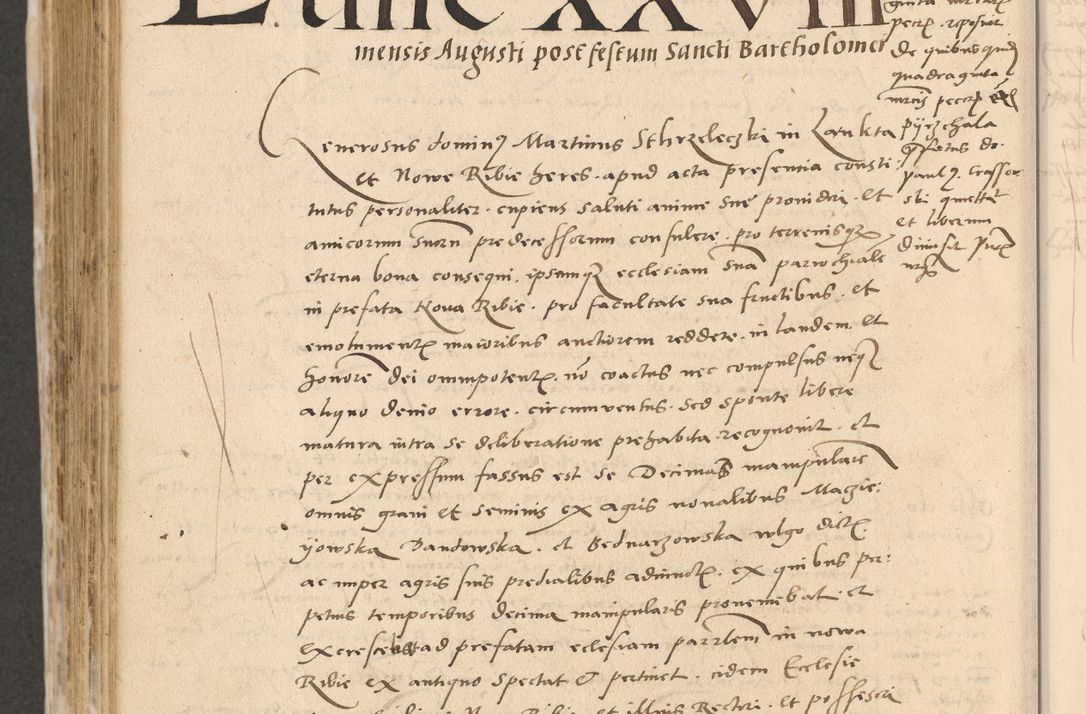 Lune XXVIII
mensis Augusti post festum Sancti Bartholomei
Generosus dominus Martinus Sthrzeleczki in Lankta
et Nowe Ribie heres. apud acta presentia consti:
tutus personaliter. cupiens saluti anime sue providere. et
amicorum suorum predecessorum consulere. pro terrenisque
eterna bona consequi. ipsamque ecclesiam suam parrochialem
in prefata Nova Ribie. pro facultate sua fructibus. et
emolumentis maioribus auctiorem reddere. in laudem et
honorem dei omnipotentis. non coactus nec compulsus neque
aliquo devio errore. circumventus. sed sponte libere
matura intra se deliberatione prehabita. recognovit. et
per expressum fassus est se Decimas manipulares
omnis grani et seminis ex agris novalibus Maczie:
yowska Dandowska. et Bednarzowska vulgo dictis
ac nuper agris suis predialibus adiunctis. ex quibus per:
petuis temporibus decima manipularis proveniebat. et
excrescebat ad prefatam ecclesiam parrochialem in nowa
Ribie ex antiquo spectat et pertinet. eidem Ecclesie
Ribie et illius Rectori. et possessori
pecunie reposuit
De quibus quidem
quadraginta
marcis pecunie
pyrzchala
do.
paulus Crassow
ski quittat
et liberum
dimisit